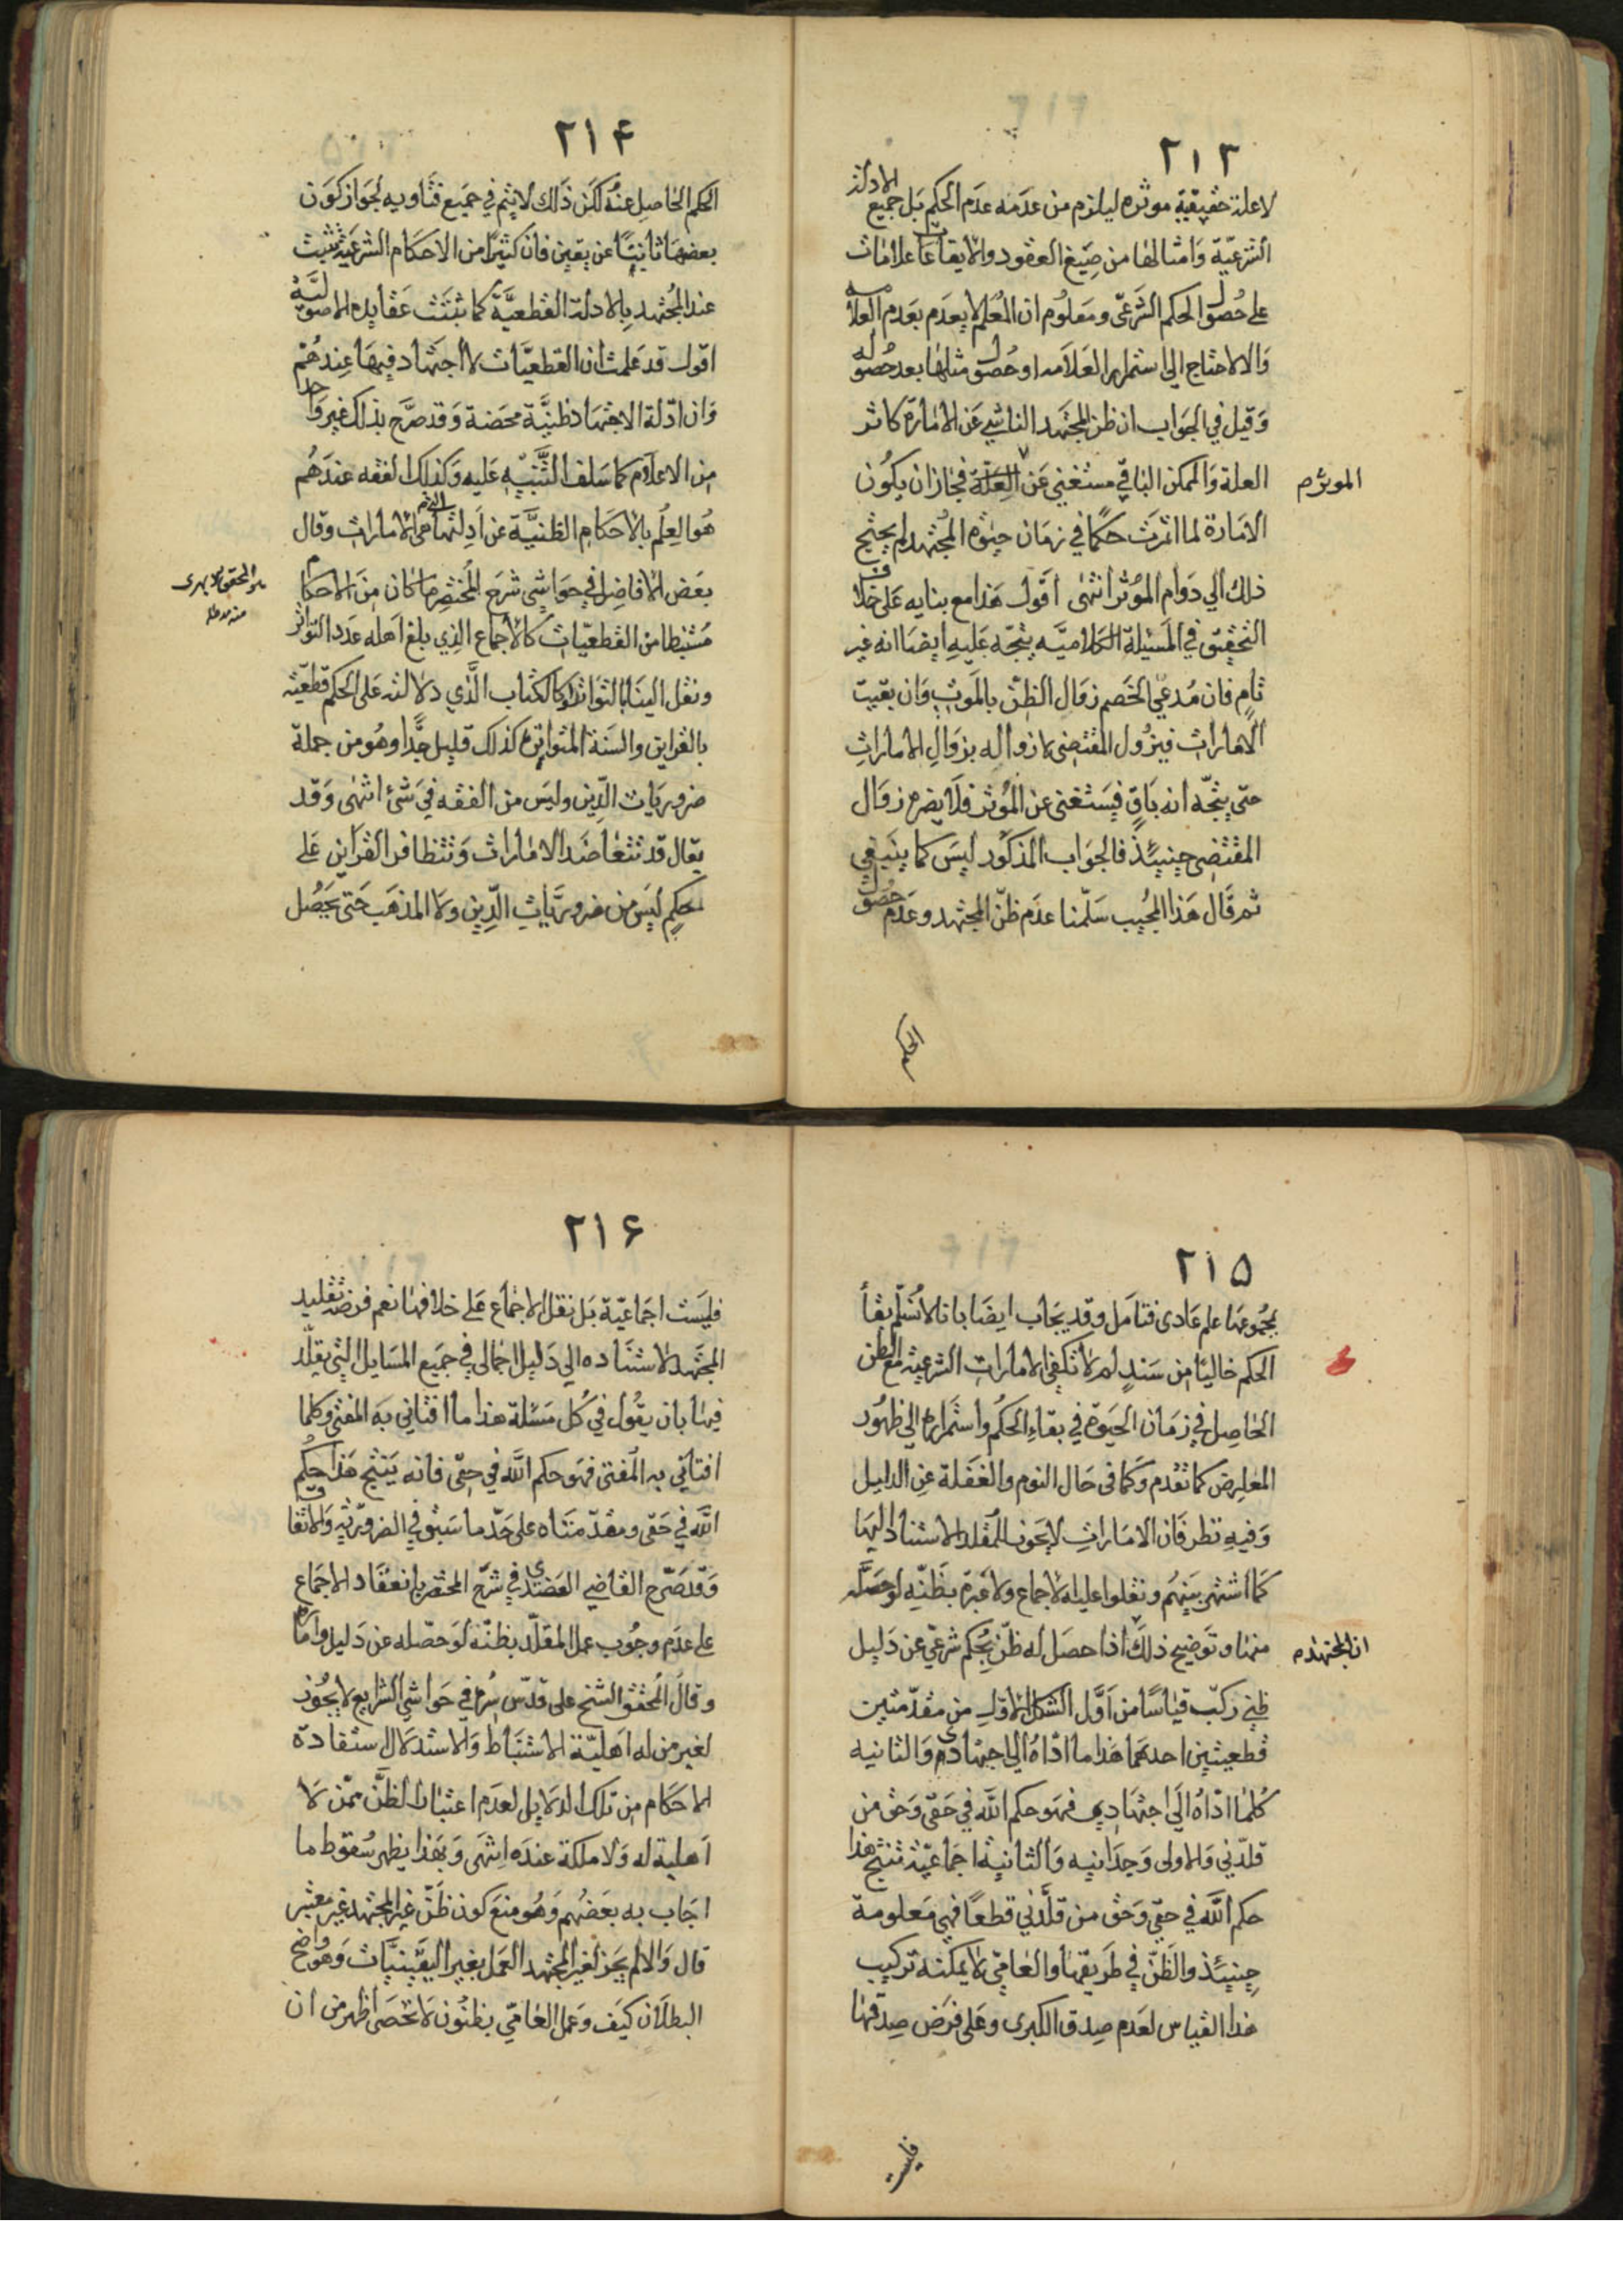 ٢١٣
لا علة حقيقية موثره ليلزم من عدمه عدم الحكم بل جميع الادلة
الشرعيّة وَامثالها من صِيَغ العقود والايقاعات علامات
على حُصول الحكم الشَرعىّ ومَعلُوم ان المُعلم لا يعدَم بعَدم العلامة
وَالا لاحتاج الى استمرار العَلاَمه او حُصول مثلها بعد حُصوله
وَقيل في الجَواب ان ظن المجتَهد الناشي عَن الامَارة كاثر
العلة وَالممكن الباقي مستغني عَن العِلّة فجَاز ان يكُون
الموثر م
الامَارة لما اثرت حكمًا في زمَان حيٰوة المُجتَهد لم يحتج
ذلك الي دَوام المُوثر انتهٰى اقول هَذا مع بنايه عَلى خلاف
التحقيق في المسَئيلة الكلاميَّه يتجّه عَليه ايضًا انه غير
تامٍ فان مُدعي الخَصم زوَال الظنّ بالمَوتِ وَان بقيت
الامارات فيزُول المقتضى لا زواله بزوَالِ الاماراتِ
حتى يتجّه انه باقٍ فيَستغني عن المُوثر فلا يضره زوَال
المقتضِى حِينئذٍ فالجوَاب المذكُور ليسَ كما ينَبغي
ثم قَال هَذا المُجيب سَلّمنا عدَم ظنّ المجتهد وعدَم حصُول
الحكم
٢١۴
الحكم الحَاصِل عنهُ لكن ذَالك لا يتم في جميَع فتَاويه لجَواز كوَن
بعضهَا ثابتًا عن يقين فان كثيرًا من الاحكَام الشرعيّة ثبت
عند المُجتهد بِالادلة القطعيَّة كما ثبتت عَقايده الاصوليَّة
اقول قد عَلمت ان القطعيَّات لا اجتهَاد فيهَا عِندهُم
وَان ادّلة الاجتهَاد ظنيَّة محَضة وَقد صرَّح بذلك غير وَاحد
من الاعلام كما سَلف التَّنبيّه عَليه وَكذلك الفقه عندَهُم
هُو العِلم بالاحكَام الظنيَّة عن اَدِلتها التي هي الامارات وقال
بعَض الافاضِل في حوَاشي شَرح المُختصِر مَا كان منَ الاحكام
هو المحقق الابهرى منه مد ظله
مُستنبطا من القطعيّات كالاجماع الذِي بلغ اهله عدَد التواتر
ونقل الينَا بالتوَاتر او كالكتاب الَّذي دلالته عَلى الحكم قطعيّة
بالقراين والسَنة المتواترة كذلك قليل جدًّا وهُو من جملة
ضروريَات الدّين وليسَ من الفقه في شَئ انتهٰى وَقد
يقال قد تتعَاضَد الامَارات وَتتظافر القرَاين عَلى
حكمٍ ليَس من ضروريَّات الدِّين ولا المذهَب حَتى يَحصُل
٢١۵
بمجُموعهَا علم عَادى فتامَل وقد يجَاب ايضَا بانا لا نُسَلّم بقاء
الحكم خاليًا من سَندٍ لم لا تكفي الامارات الشرعية مع الظن
الحاصِل في زمَان الحيَوة في بقاءِ الحكُم واستمرَاره الى ظهُور
المعارِض كما تقدم وَكما في حَال النوم والغفَلة عن الدليل
وَفيهِ نظر فان الامَارات لا يَجوز للمقلد الاستناد اليهَا
كمَا اشتهر بَينهُم ونقلوا عليه الاجماع ولا عَبرة بظَنّه لو حصَّله
منها وتوَضيح ذلك ان المجتهد م اذا حصَل له ظنّ بحُكم شرعيّ عن دَليل
ظني ركبّ قيَاسًا من اَوَّل الشكل الاول من مقدّمتين
قطعيتيِن احدهما هَذا ما ادّاهُ الي اجتهَادي وَالثانيه
كُلما ادّاهُ الي اجتهَادي فهَو حكم اللَّه في حَقّى وَحق من
قلدّني وَالاولى وَجدَانيه وَالثانية اجمَاعيّة تنتج هذا
حكم اللَّه في حقّي وَحق من قلَّدني قطعًا فهي مَعلومة
حِينئذٍ والظَنّ في طَريقهَا والعَاميّ لا يمكنه تركيب
هَذا القياس لعَدم صِدق الكبرى وعَلى فرَض صِدقها
فليست
٢١۶
فليسَت اجمَاعيّة بَل نقل الاجمَاع عَلى خلافهَا نعم فرضه تقليد
المجتَهد لاستنَاده الي دَليل اجمالى في جَميَع المسَايل التي يقلّد
فيهَا بان يقُول في كُل مَسئلة هذا ما افتاني به المفتى وكلما
افتاني به المُفتى فهَو حكم اللَّه في حقّى فانه يَنتج هَذا حكُم
اللَّه في حَقى ومقدّمتَاه على حَدّ ما سَبق في الضروريّة وَالاتفاق
وَقد صَرّح القاضي العَضدي في شَرح المختصَر بانعقَاد الاجمَاع
على عدَم وجُوب عمل المقلّد بظنّه لوَ حصّله عن دَليل وامارة
وقالَ المُحقق الشيخ على قدّس سرُه في حوَاشِي الشرايع لا يجُوز
لغير من له اهَليّة الاستنبَاط وَالاستدلال استفادة
الاحكَام مِن تلك الدلايل لعَدم اعتبار الظَنّ ممّن لا
اَهلية له وَلا ملكة عندَه انتهى وَبهذا يظهر سُقوط ما
اجَاب به بعَضهُم وَهُو منَع كون ظَنّ غير المجتهد غير معتبر
قال وَالا لم يَجز لغير المجتهد العَمل بغير اليقَينيَّات وَهُو واضح
البطلَان كيَف وعَمل العَاميّ بظنُون لا تحصَى اظهر من ان